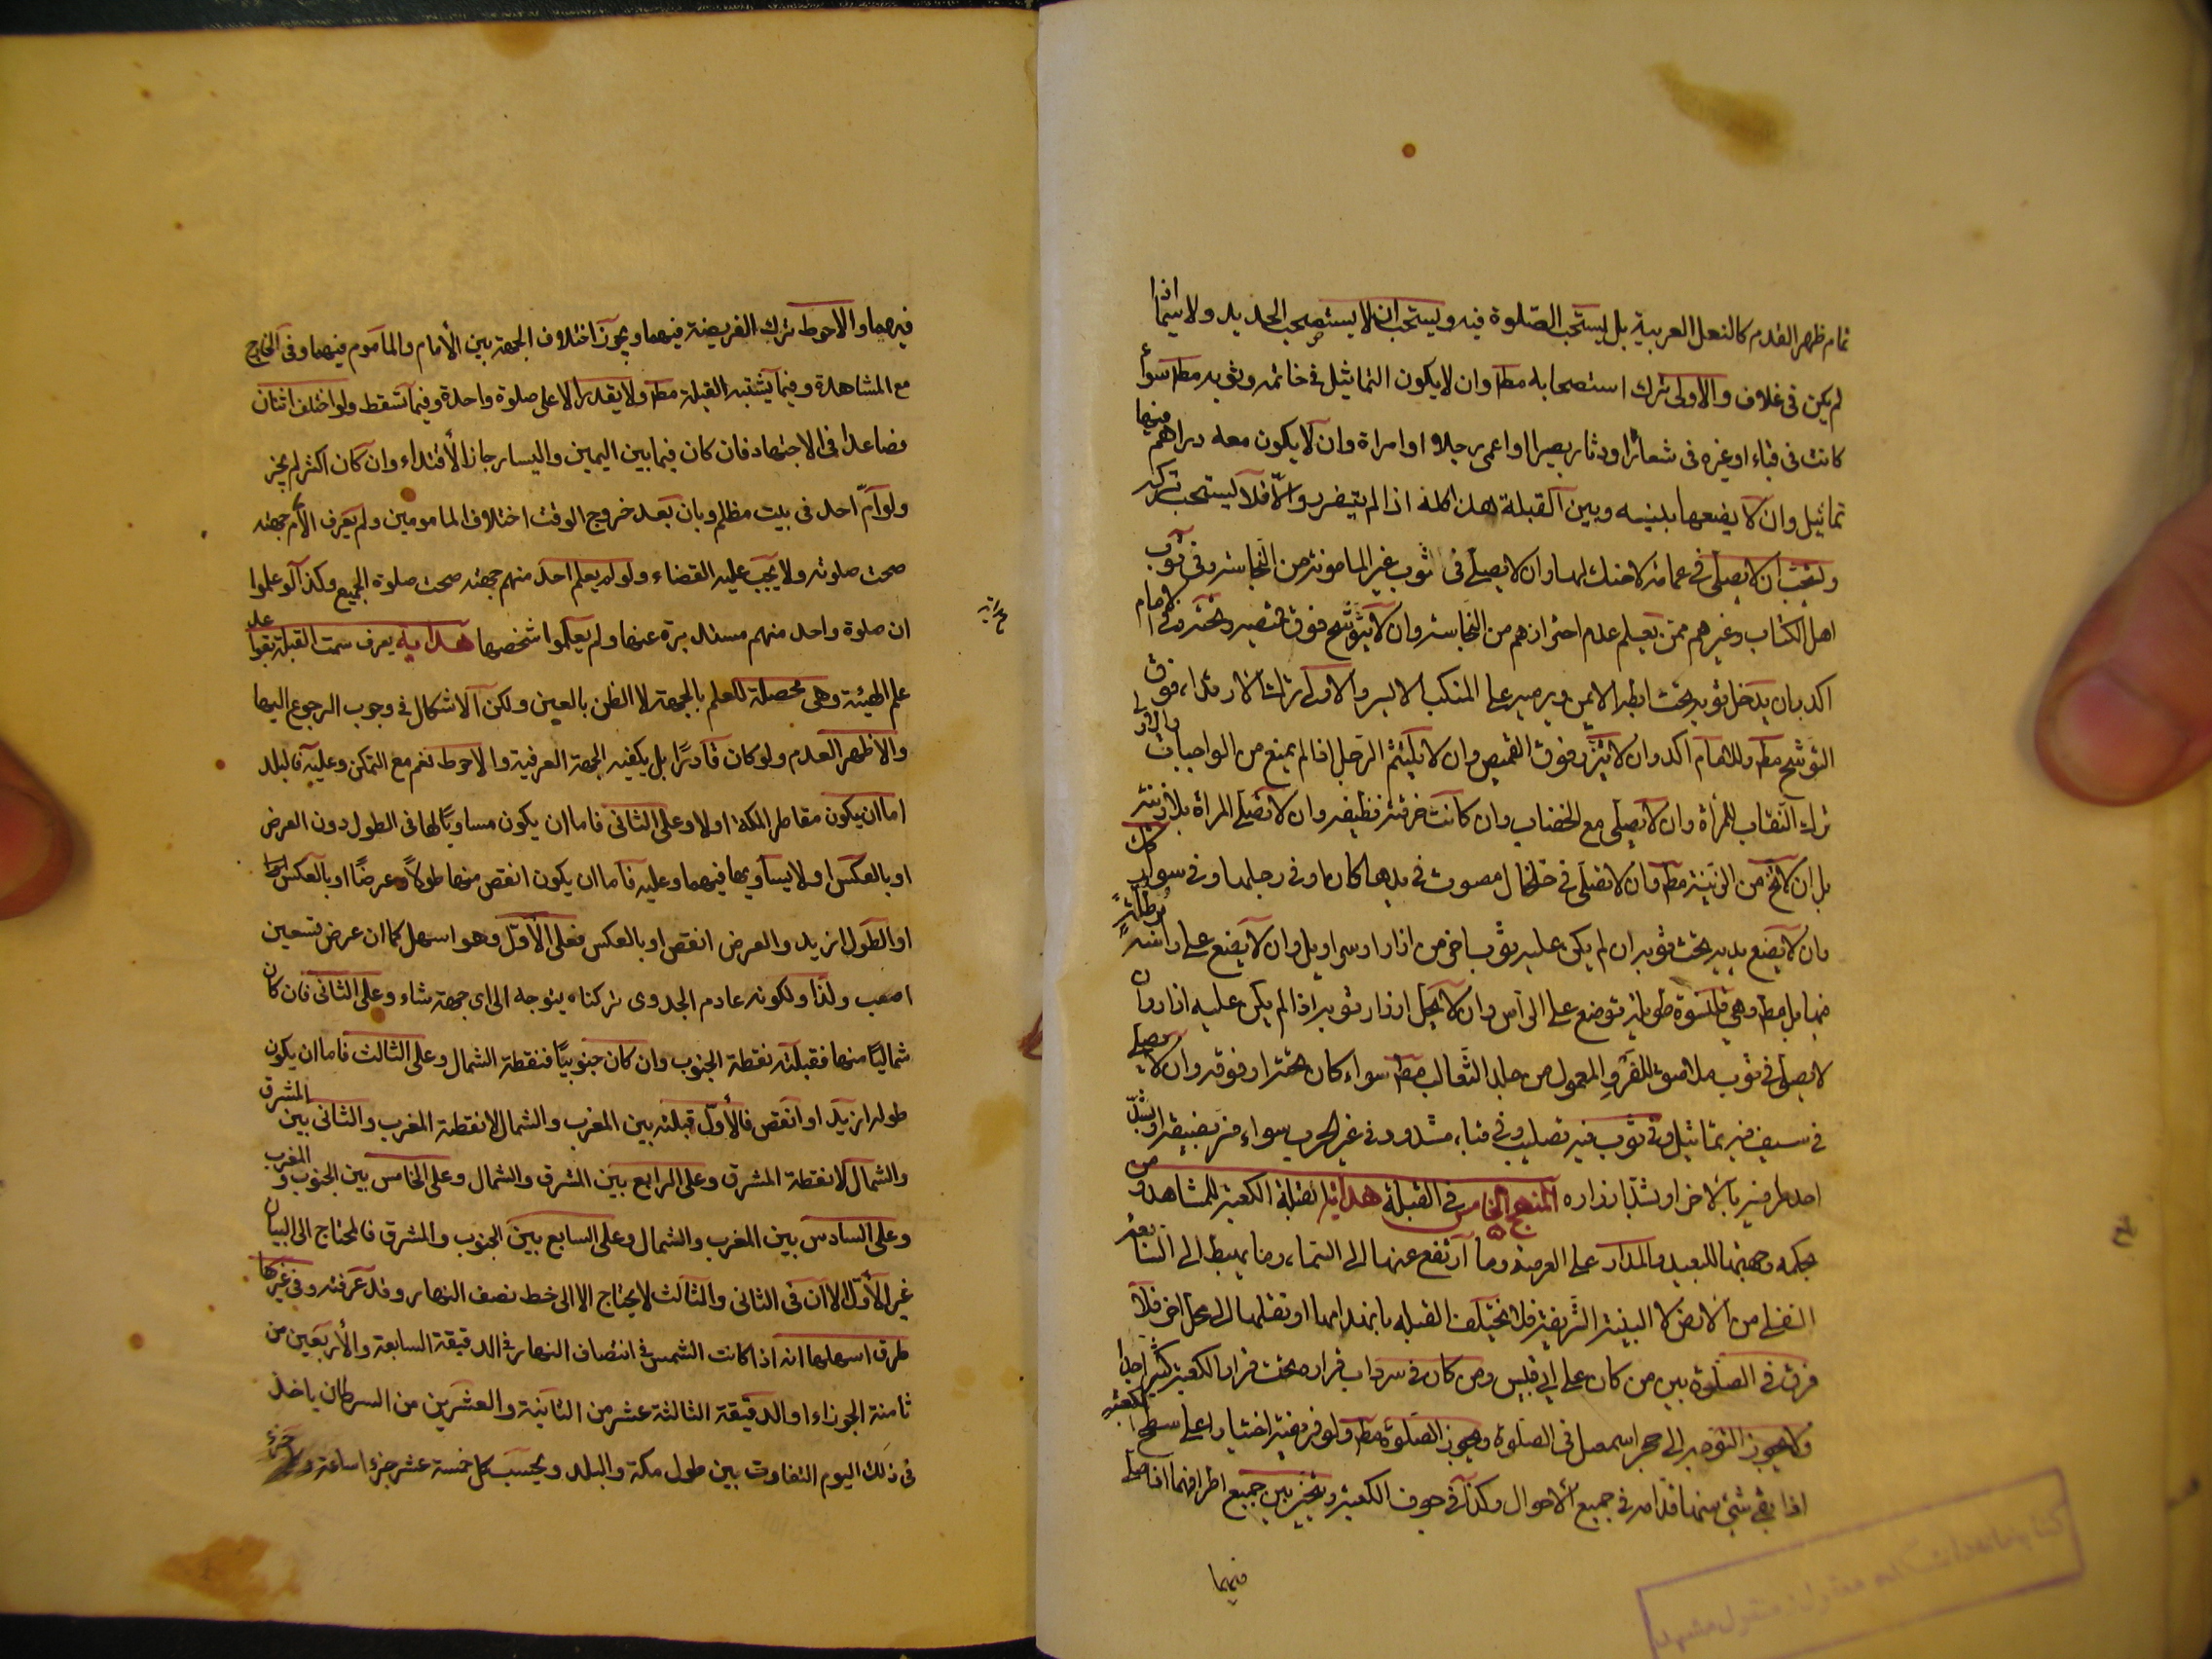 تمام ظهر القدم كالنعل العربية بل يستحب الصلوة فيه ويستحب ان لا يستصحب الحديد ولا سيما اذا
لم يكن فى غلاف والاولى ترك استصحابه مط وان لا يكون التماثيل فى خاتمه وثوبه مط سواء
كانت فى قباء او غيره فى شعار او دثار بصيرا او اعمى رجلا او امراة وان لا يكون معه دراهم فيها
تماثيل وان لا يضعها بينه وبين القبلة هذا كله اذا لم يتضرر والا فلا يستحب تركه
ان لا يصلى فى عمامة لا حنك لها وان لا يصلى فى ثوب غير المامونة من النجاسة وفى ثوب
اهل الكتاب وغيرهم ممن يعلم عدم احترازهم من النجاسة وان لا يتوشح فوق قميصه وتحته وفى الامام
اكد بان يدخل ثوبه تحت ابطه الايمن ويرميه على المنكب الايسر والاولى ترك الارتداء فوق
التوشح مط وللامام اكد وان لا يتزر فوق القميص وان لا يلتثم الرجل اذا لم يمنع من الواجبات والاولى
ترك النقاب للمرأة وان لا يصلى مع الخضاب وان كانت خرقته نظيفه وان لا تصلى المراة بلا زينة
بل ان لا تخ من الزينة مط وان لا تصلى فى خلخال مصوت فى يدها كان او فى رجلها وفى سواد
وان لا يضع يديه تحت ثوبه ان لم يكن عليه ثوب اخر من ازار او سراويل وان لا يضع على راسه
منها بل مط وهى قلنسوة طويلة توضع على الراس وان لا يحل ازرار ثوبه اذا لم يكن عليه ازار وان
لا يصلى فى ثوب ملاصق للفرو المعمول من جلد الثعالب مط سواء كان تحته او فوقه وان لا يصلى
فى سيف فيه تماثيل وفى ثوب فيه تصليب وفى قباء مشدود فى غير الحرب سواء فيه تضييقه او شد
احد طرفيه بالاخر او بشد ازراره المنهج الخامس فى القبلة هداية القبلة الكعبة للمشاهد ومن
بحكمه وجهتها للبعيد والمدار على العرصة وما ارتفع عنها الى السماء وما يهبط الى السابعة
السفلى من الارض لا البينة الشريفة فلا تختلف القبله بانهدامها او نقلها الى محل اخر فلا
فرق فى الصلوة بين من كان على ابى قبيس ومن كان فى سرداب قراره تحت قرار الكعبة كثيرا جدا
ولا يجوز التوجه الى حجر اسمعيل فى الصلوة ويجوز الصلوة مط ولو فريضة اختيارا على سطح الكعبة
اذا بقى شئ منها قدامه فى جميع الاحوال وكذا فى جوف الكعبة ويتخير بين جميع اطرافها اذا صلى
فيهما
فيهما والاحوط ترك الفريضة فيهما ويجوز اختلاف الجهة بين الأمام والمأموم فيهما وفى الخارج
مع المشاهدة وفيما يشتبه القبلة مط ولا يقدر الا على صلوة واحدة وفيما تسقط ولو اختلف اثنان
فصاعدا فى الاجتهاد فان كان فيما بين اليمين واليسار جاز الأقتداء وان كان اكثر لم يجز
ولو أمّ احد فى بيت مظلم وبان بعد خروج الوقت اختلاف المامومين ولم يعرف الأمام جهته
صحت صلوته ولا يجب عليه القضاء ولو لم يعلم احد منهم جهته صحت صلوة الجميع وكذا لو علموا
ان صلوة واحد منهم مستدبرة عنها ولم يعلموا شخصها هداية يعرف سمت القبلة بقواعد
علم الهيئة وهى محصلة للعلم بالجهة لا الظن بالعين ولكن الاشكال فى وجوب الرجوع اليها
والاظهر العدم ولو كان قادرًا بل يكفيه الجهة العرفية والاحوط نعم مع التمكن وعليه فالبلد
اما ان يكون مقاطر المكه اولا وعلى الثانى فاما ان يكون مساويًا لها فى الطول دون العرض
او بالعكس او لا يساويها فيهما وعليه فاما ان يكون انقص منها طولاً وعرضًا او بالعكس
او الطول ازيد والعرض انقص او بالعكس فعلى الأوّل وهو اسهل كما ان عرض تسعين
اصعب ولذا ولكونه عادم الجدوى تركناه يتوجه الى اى جهة شاء وعلى الثانى فان كان
شماليًا منها فقبلته نقطة الجنوب وان كان جنوبيًا فنقطة الشمال وعلى الثالث فاما ان يكون
طوله ازيد او انقص فالأوّل قبلته بين المغرب والشمال لا نقطة المغرب والثانى بين المشرق
والشمال لا نقطة المشرق وعلى الرابع بين المشرق والشمال وعلى الخامس بين الجنوب والمغرب
وعلى السادس بين المغرب والشمال وعلى السابع بين الجنوب والمشرق فالمحتاج الى البيان
غير الأوّل الا ان فى الثانى والثالث لا يحتاج الا الى خط نصف النهار وقد عرفته وفى غيرها
طرق اسهلها انه اذا كانت الشمس فى انتصاف النهار فى الدقيقة السابعة والأربعين من
ثامنة الجوزاء او الدقيقة الثالثة عشر من الثانية والعشرين من السرطان ياخذ
فى ذلك اليوم التفاوت بين طول مكة والبلد ويحسب كل خمسة عشر جزء اساعة